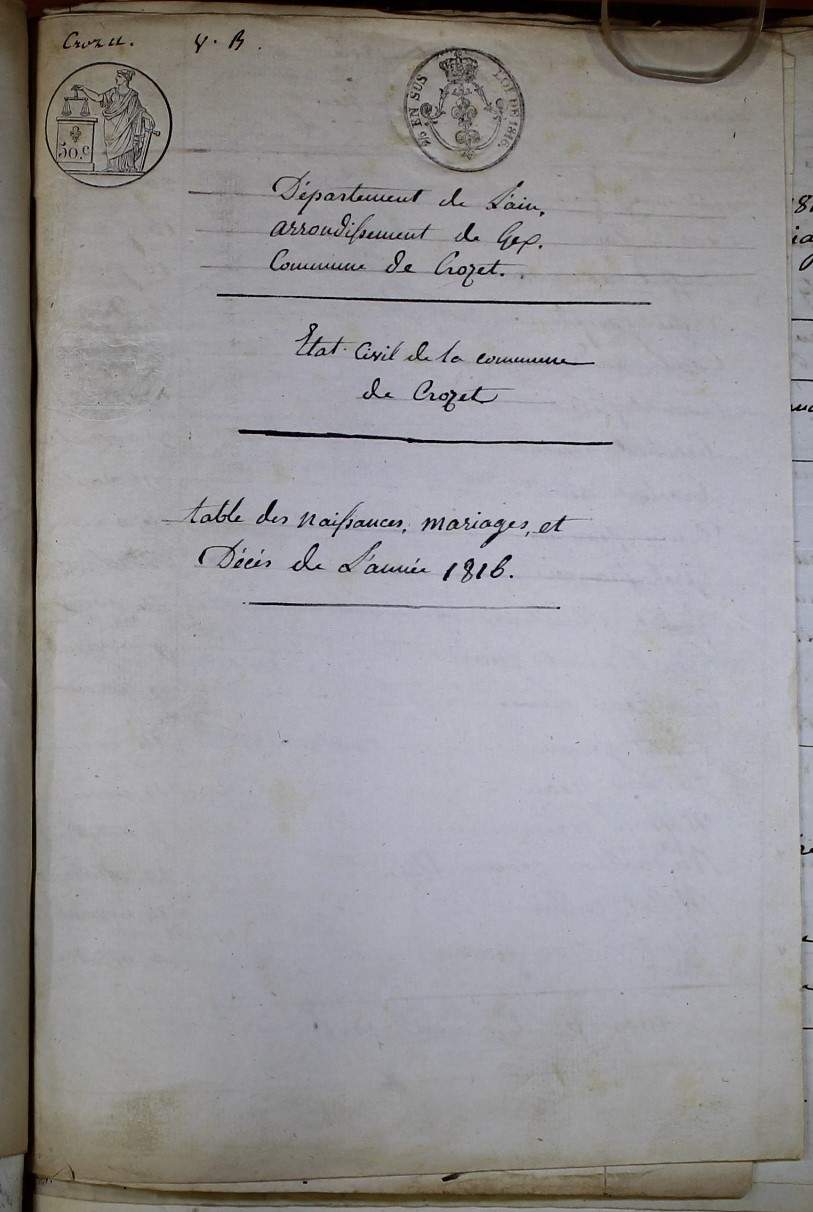 Crozet.
50.c
EN SUS
LOI DE 1816.
Département de L'ain,
arrondissement de Gex.
Commune de Crozet.
Etat Civil de la commune
de Crozet
table des naissances, mariages, et
Décès de L'année 1816.